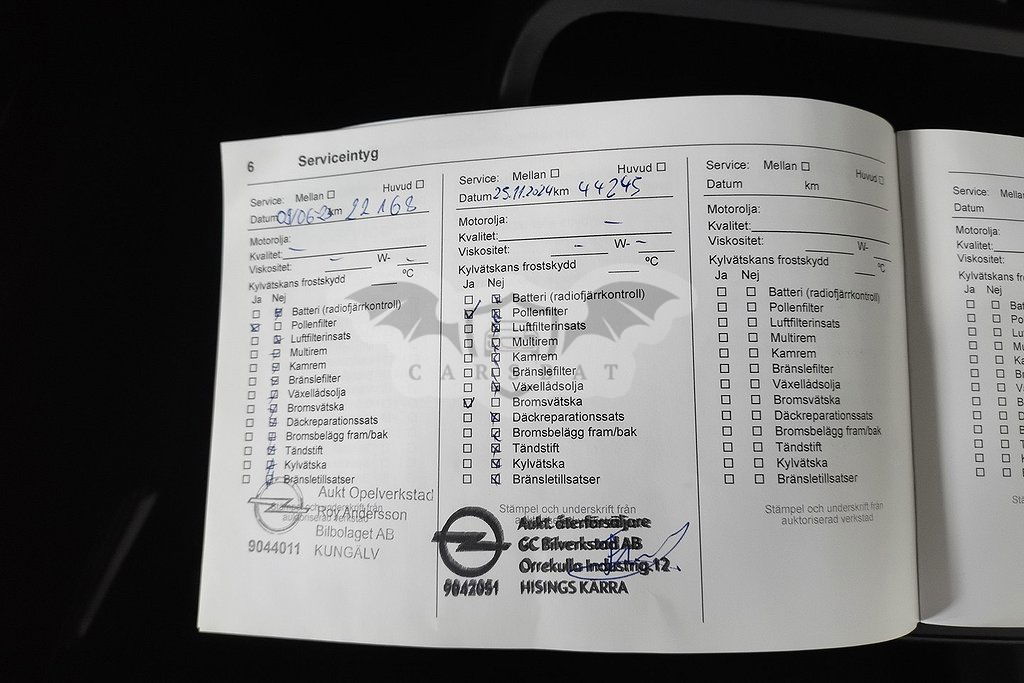 6 Serviceintyg
Service: Mellan Huvud
Datum km 22168
Motorolja:
Kvalitet: –
Viskositet: – W- –
Kylvätskans frostskydd ºC
Ja Nej
Batteri (radiofjärrkontroll)
Pollenfilter
Luftfilterinsats
Multirem
Kamrem
Bränslefilter
Växellådsolja
Bromsvätska
Däckreparationssats
Bromsbelägg fram/bak
Tändstift
Kylvätska
Bränsletillsatser
Stämpel och underskrift från
auktoriserad verkstad
Aukt Opelverkstad
Roy Andersson
Bilbolaget AB
9044011 KUNGÄLV
Service: Mellan Huvud
Datum 25.11.2024 km 44245
Motorolja: –
Kvalitet:
Viskositet: – W- –
Kylvätskans frostskydd ºC
Ja Nej
Batteri (radiofjärrkontroll)
Pollenfilter
Luftfilterinsats
Multirem
Kamrem
Bränslefilter
Växellådsolja
Bromsvätska
Däckreparationssats
Bromsbelägg fram/bak
Tändstift
Kylvätska
Bränsletillsatser
Stämpel och underskrift från
Aukt. återförsäljare
GC Bilverkstad AB
Orrekulla Industrig.12
9042051 HISINGS KÄRRA
Service: Mellan Huvud
Datum km
Motorolja:
Kvalitet:
Viskositet: W-
Kylvätskans frostskydd ºC
Ja Nej
Batteri (radiofjärrkontroll)
Pollenfilter
Luftfilterinsats
Multirem
Kamrem
Bränslefilter
Växellådsolja
Bromsvätska
Däckreparationssats
Bromsbelägg fram/bak
Tändstift
Kylvätska
Bränsletillsatser
Stämpel och underskrift från
auktoriserad verkstad
Service: Mellan
Datum
Motorolja:
Kvalitet:
Viskositet:
Kylvätskans
Ja Nej